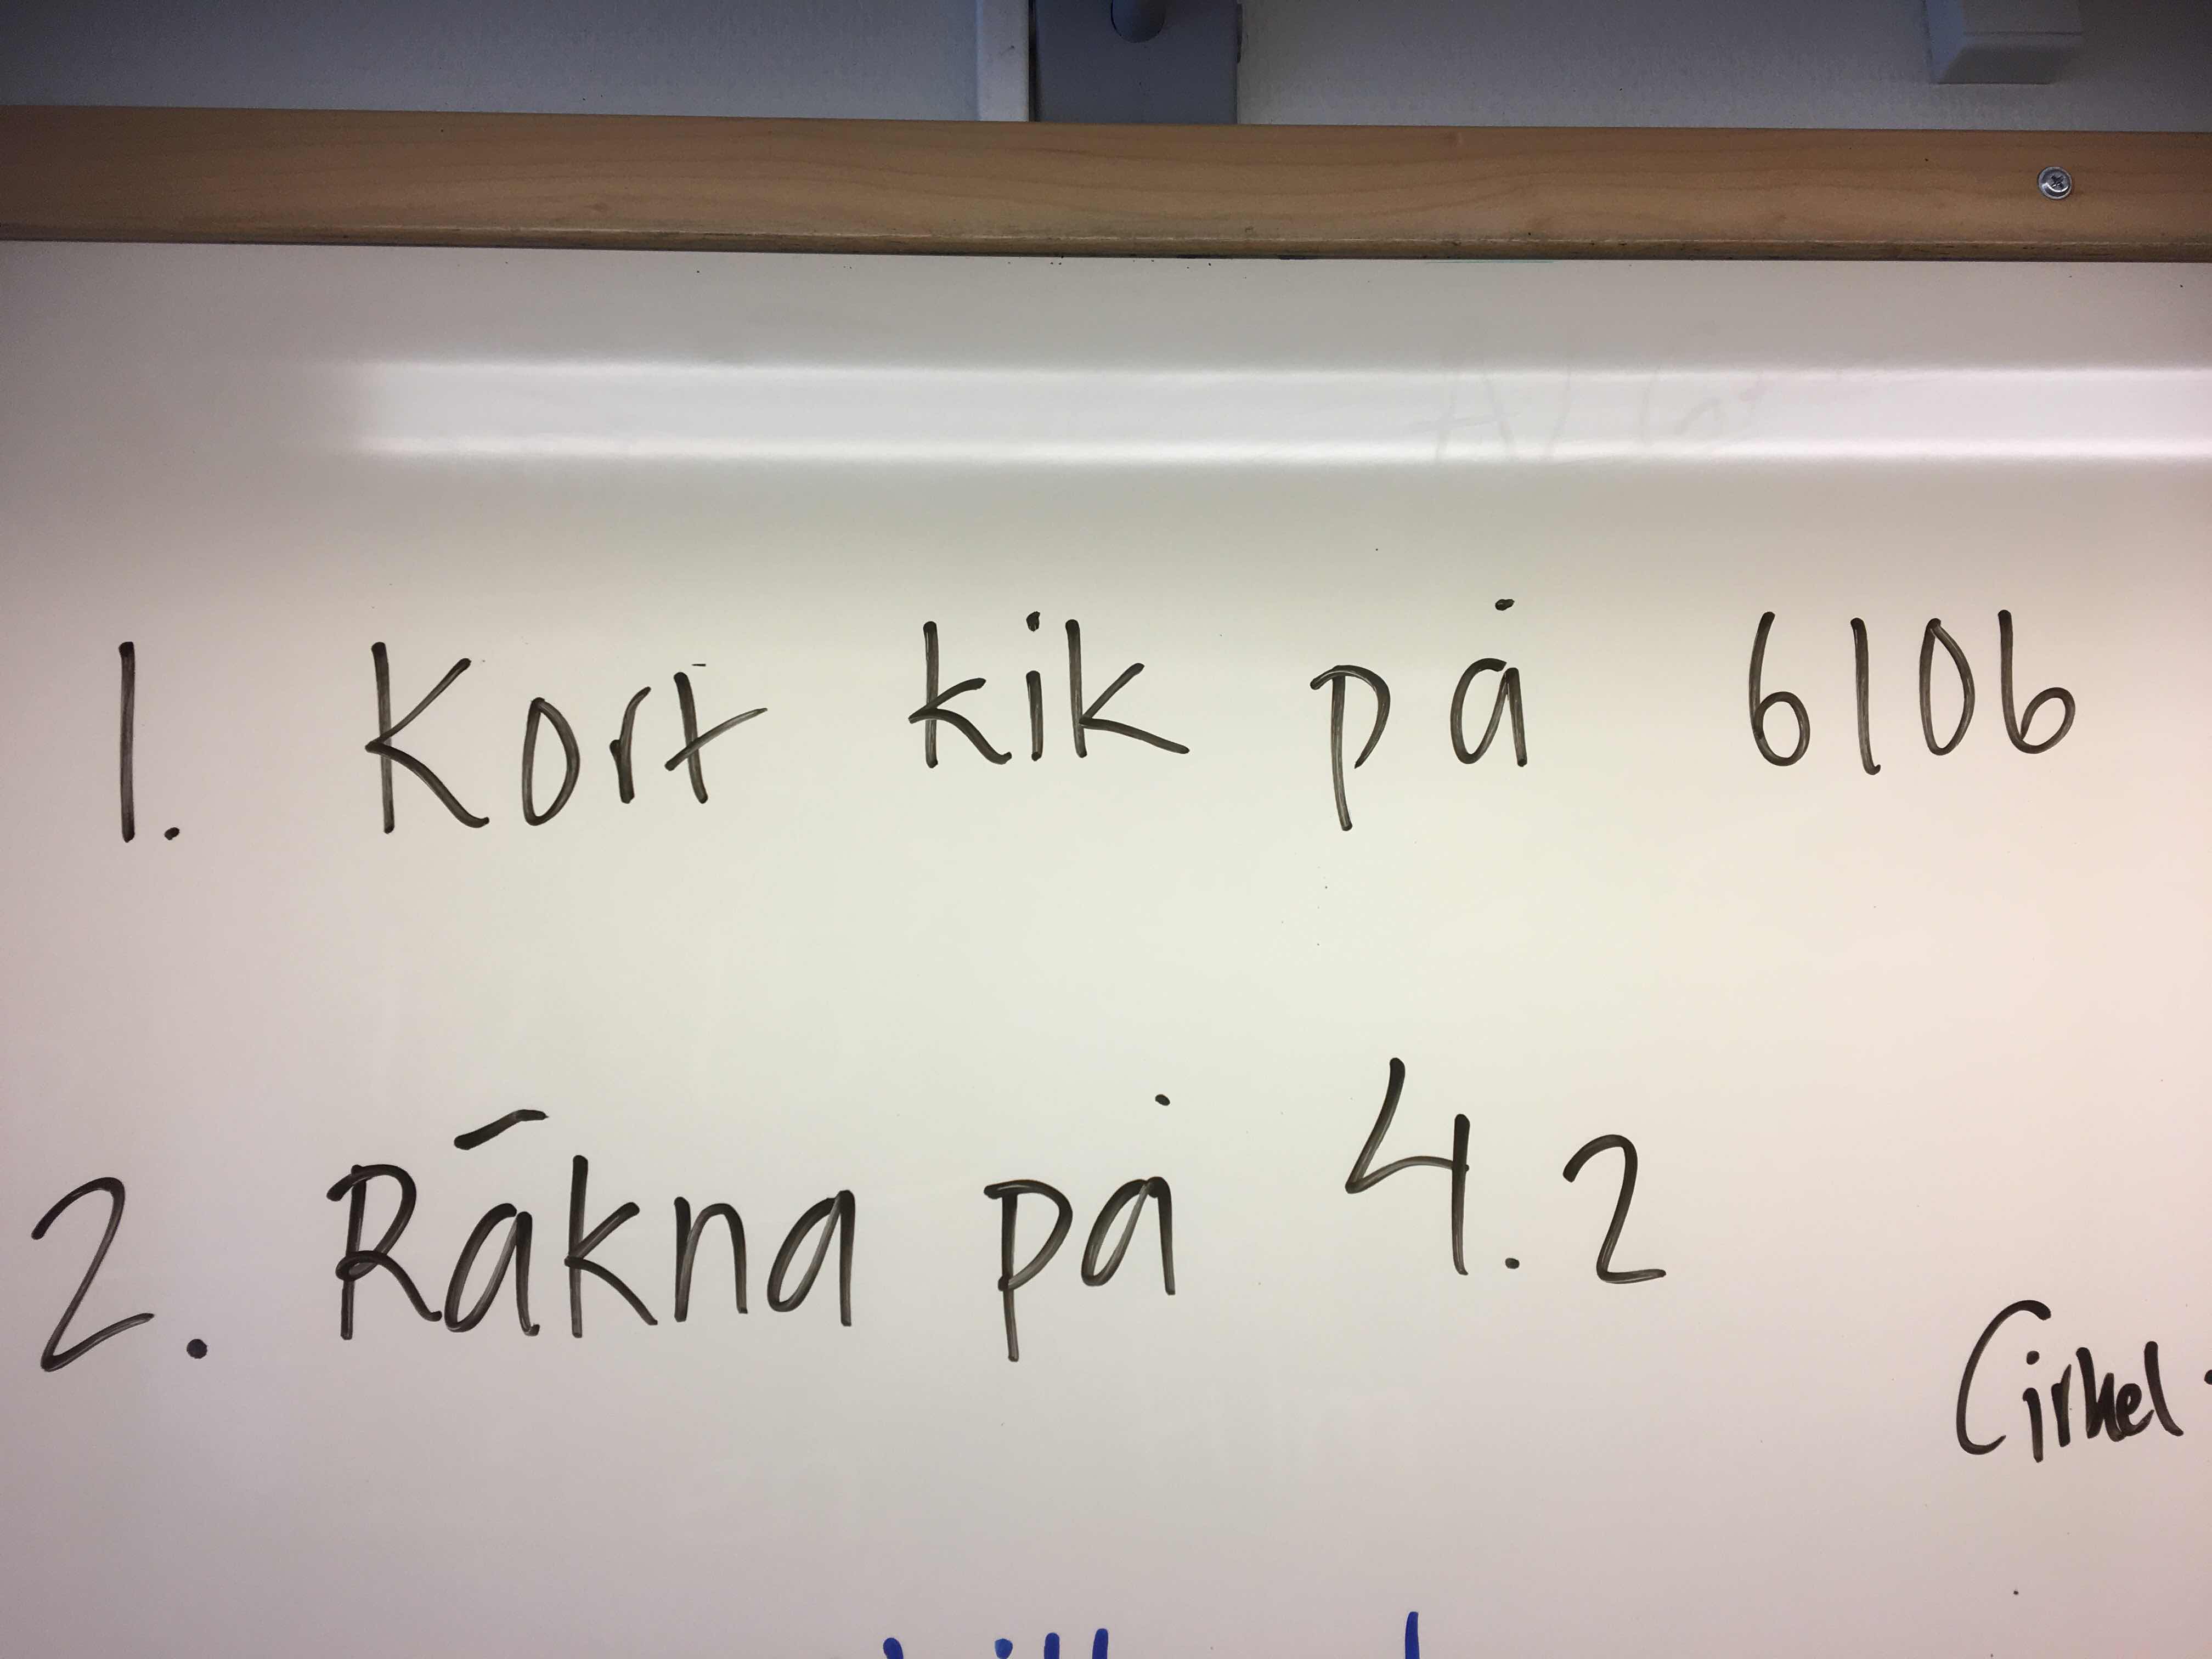 1. Kort kik på 6106
2. Räkna på 4.2
Cirkel